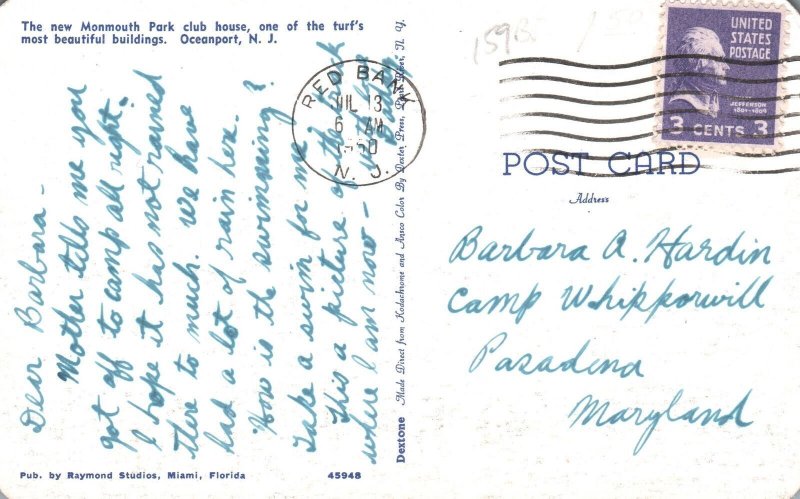 The new Monmouth Park club house, one of the turf's
most beautiful buildings. Oceanport, N. J.
Dear Barbara -
Mother tells me you
got off to camp all right.
I hope it has not rained
there to much. We have
had a lot of rain here.
How is the swimming?
Take a swim for me.
This a picture of the
where I am now -
Pub. by Raymond Studios, Miami, Florida
45948
Dextone
Made Direct from Kodachrome and Ansco Color By Dexter Press, Pearl River, N. Y.
RED BANK
JUL 13
6 AM
N. J.
1598
UNITED
STATES
POSTAGE
JEFFERSON
1801-1809
3 CENTS 3
POST CARD
Address
Barbara A. Hardin
Camp Whipporwill
Pasadena
Maryland